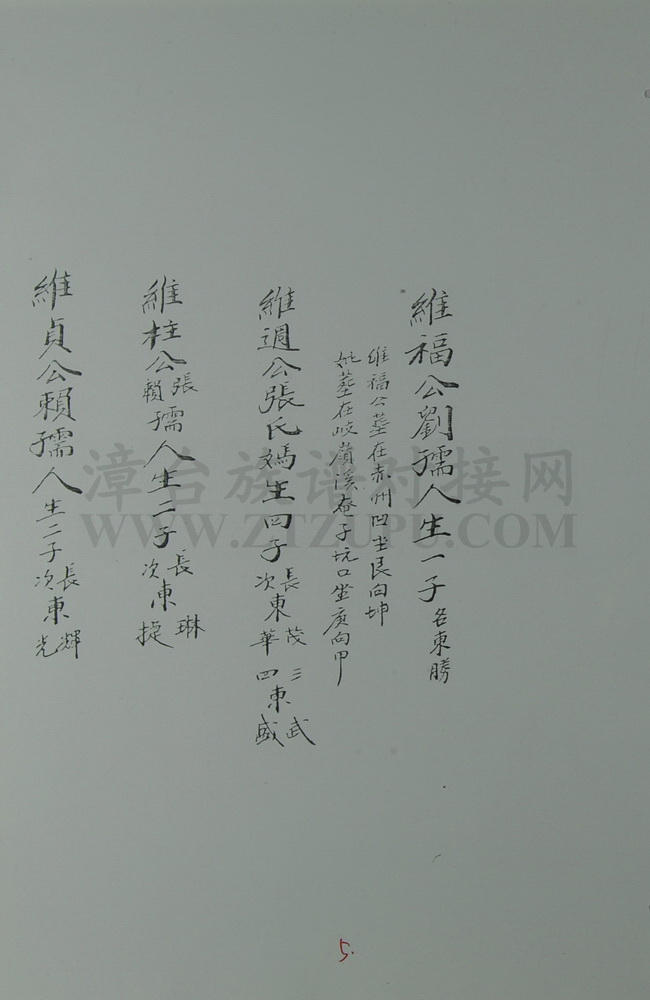 維福公劉孺人生一子名東勝
維福公墓在赤州凹坐艮向坤
妣墓在岐嶺溪巷子坑口坐庚向甲
維週公張氏媽生四子長東茂次東華三東武四東盛
維柱公張賴孺人生二子長東琳次東捷
維貞公賴孺人生二子長東輝次東光
漳台族谱对接网
WWW.ZTZUPU.COM
5.